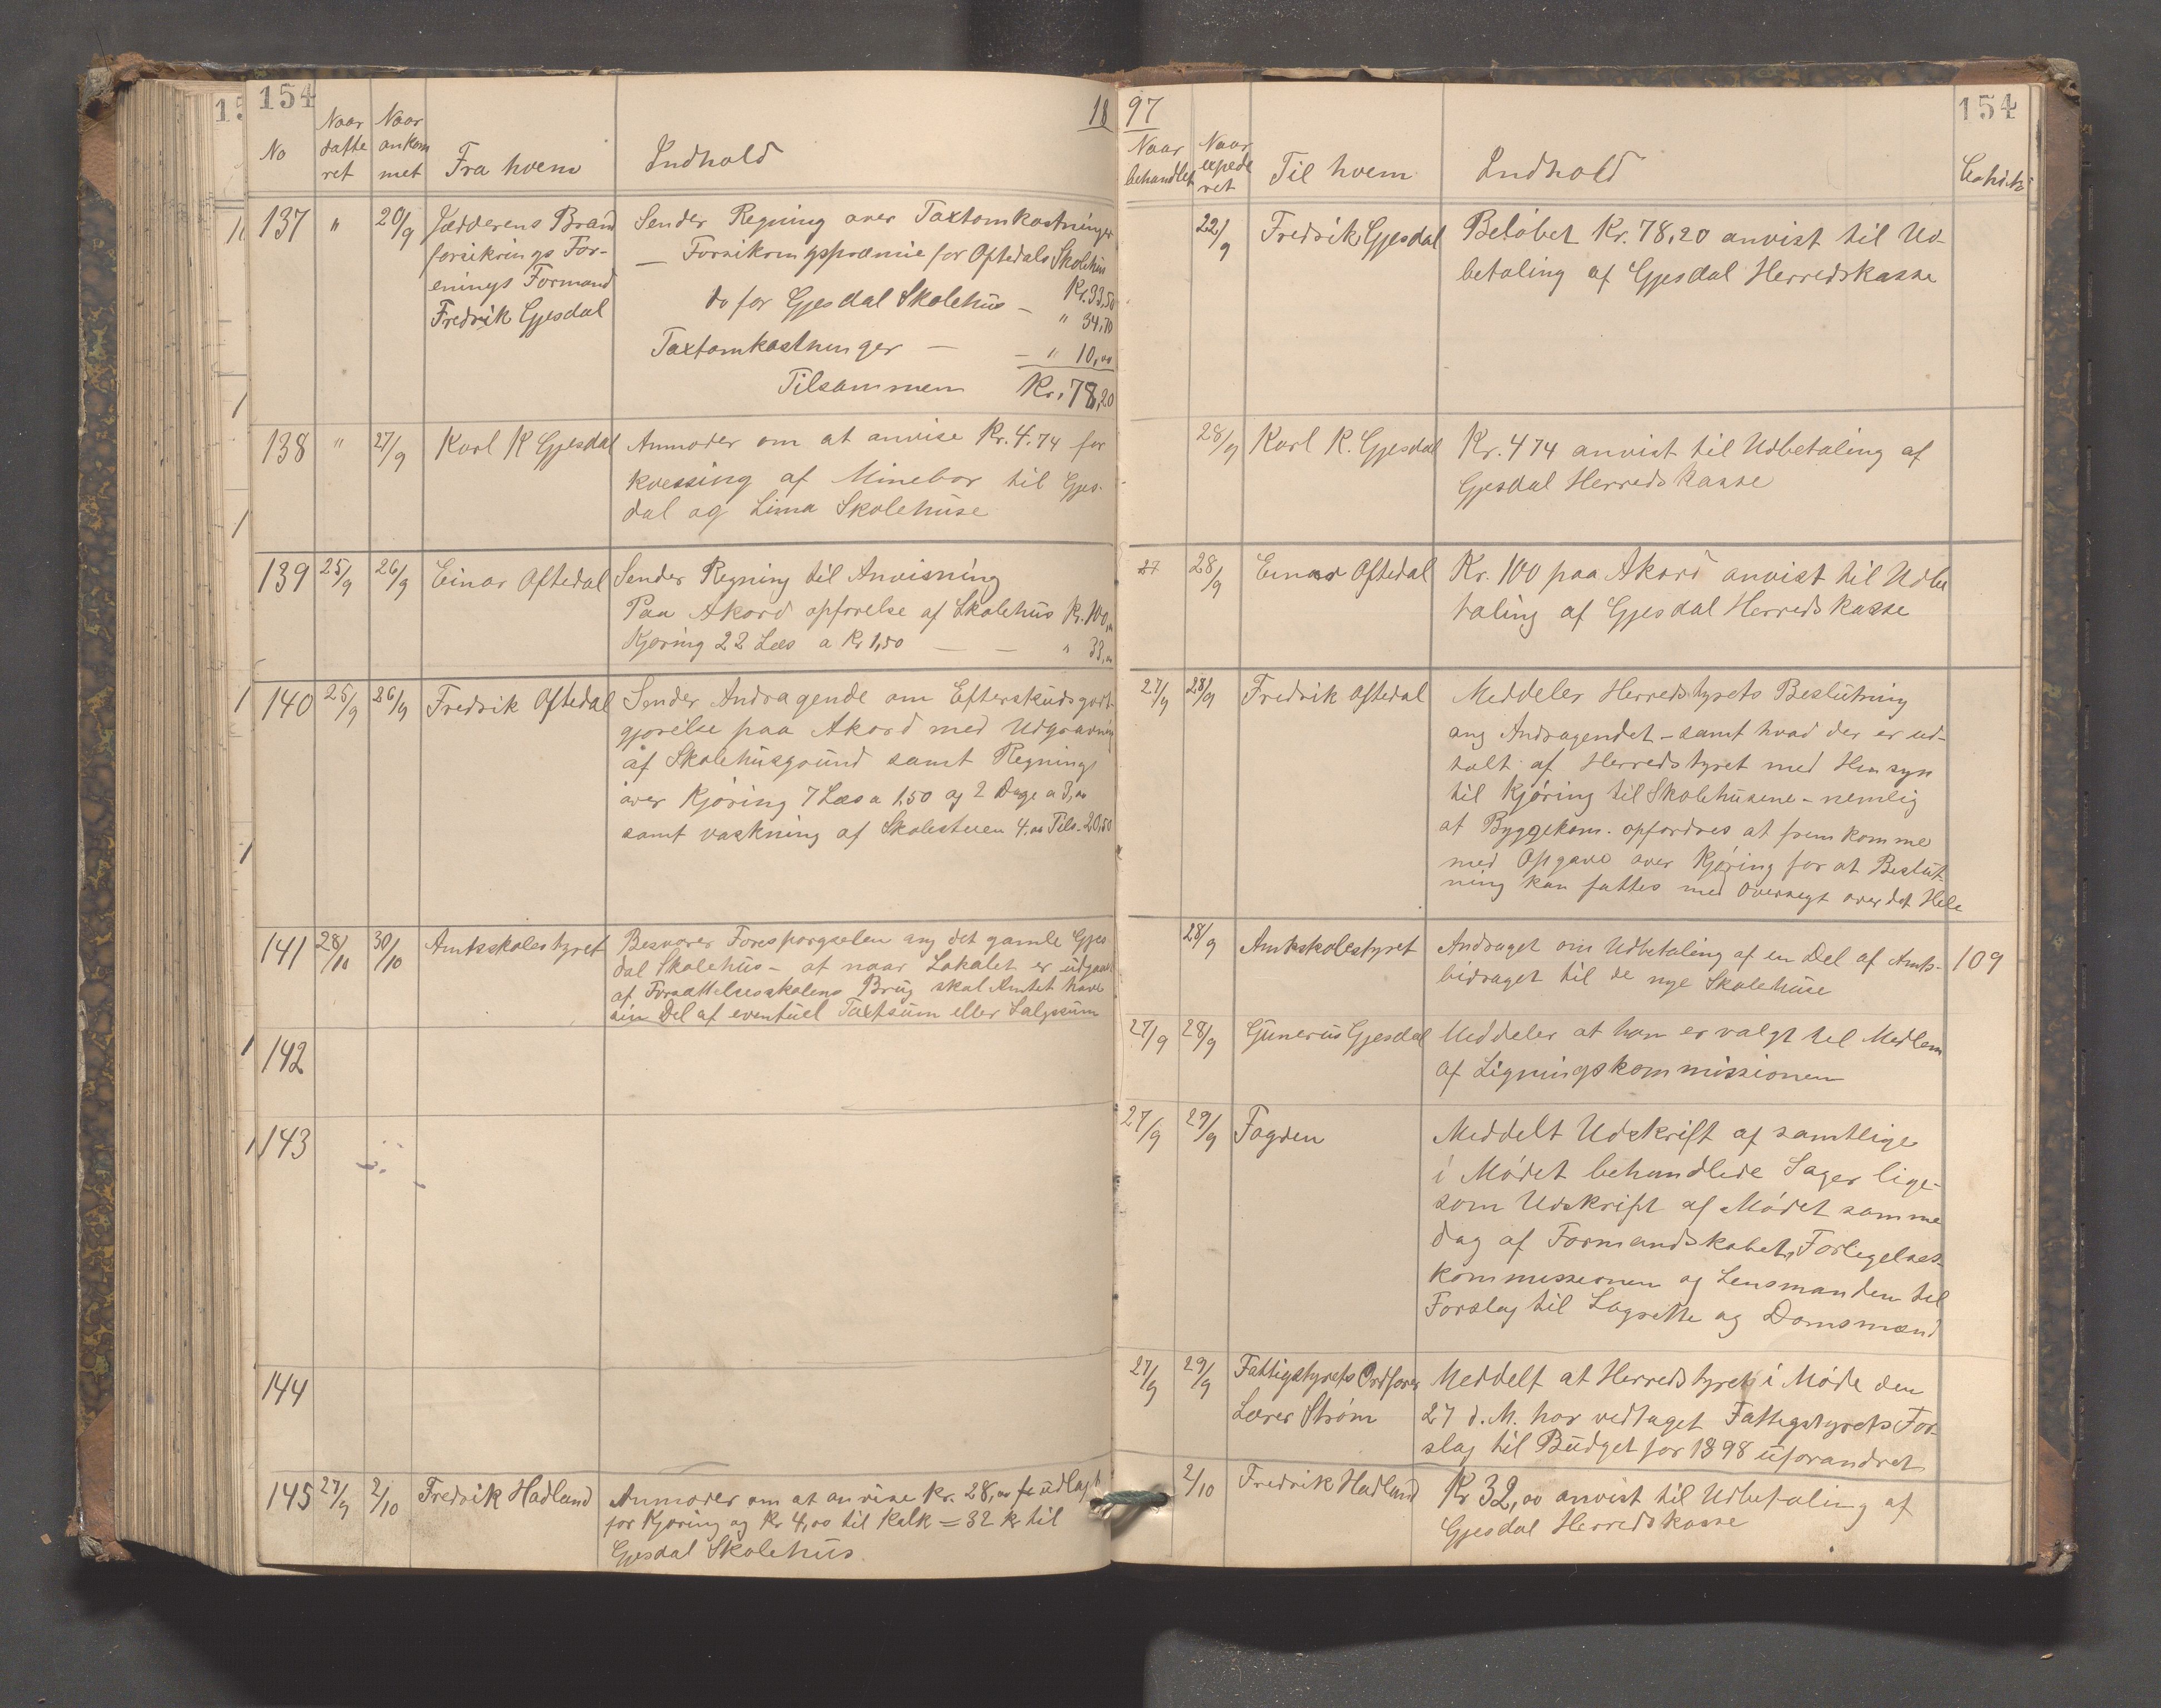 154
18
No
Naar datteret
Naar ankommet
Fra hvem
Indhold
137 " 20/9
Jædderens Brand
forsikrings For-
enings Formand
Fredrik Gjesdal
Sender Regning over Taxtomkostninger
— Forsikringspræmie for Oftedals Skolehus
Kr. 33,50
do for Gjesdal Skolehus — " 34,70
Taxtomkostninger — — " 10,00
Tilsammen Kr. 78,20
138 " 27/9 Karl K Gjesdal
Anmoder om at anvise Kr. 4.74 for
kvessing af Minebor til Gjes-
dal og Lima Skolehuse
139 25/9 26/9 Einar Oftedal
Sender Regning til Anvisning
Paa Akord opførelse af Skolehus Kr. 100,00
Kjøring 22 Læs a Kr 1,50 — — " 33,00
140 25/9 26/9 Fredrik Oftedal
Sender Andragende om Efterskudsgodt-
gjørelse paa Akord med Udgravning
af Skolehusgrund samt Regning
over Kjøring 7 Læs a 1,50 og 2 Dage a 3,00
samt vaskning af Skolestuen 4,00 Tils. 20,50
141 28/10 30/10 Amtsskolestyret
Besvarer Forespørgselen ang det gamle Gjes
dal Skolehus — at naar Lokalet er udgaaet
af Forsættelsesskolens Brug skal Amtet have
sin Del af eventuel Taxtsum eller Salgssum
142
143
144
145 27/9 2/10 Fredrik Hadland
Anmoder om at anvise Kr. 28,00 udlagt
for Kjøring og Kr 4,00 til Kalk = 32 kr til
Gjesdal Skolehus
97
154
Naar behandlet
Naar expederet
Til hvem
Indhold
22/9 Fredrik Gjesdal
Beløbet Kr. 78,20 anvist til Ud-
betaling af Gjesdal Herredskasse
28/9 Karl K. Gjesdal
Kr. 4 74 anvist til Udbetaling af
Gjesdal Herredskasse
27 28/9 Einar Oftedal
Kr. 100 paa Akord anvist til Udbe
taling af Gjesdal Herredskasse
27/9 28/9 Fredrik Oftedal
Meddeler Herredstyrets Beslutning
ang Andragendet — samt hvad der er ud-
talt af Herredstyret med Hensyn
til Kjøring til Skolehusene — nemlig
at Byggekom. opfordres at fremkomme
med Opgave over Kjøring for at Beslut-
ning kan fattes med Oversigt over det Hele
28/9 Amtskolestyret
Andraget om Udbetaling af en Del af Amts-
bidraget til de nye Skolehuse
109
27/9 28/9 Gunerius Gjesdal
Meddeler at han er valgt til Medlem
af Ligningskommissionen
27/9 29/9 Fogden
Meddelt Udskrift af samtlige
i Mødet behandlede Sager lige-
som Udskrift af Mødet samme
dag af Formandskabet, Forligelses-
kommissionen og Lensmanden til
Forslag til Lagrette og Domsmænd
27/9 29/9 Fattigstyrets Ordfører
Lærer Strøm
Meddelt at Herredstyret i Møde den
27 d. M. har vedtaget Fattigstyrets For-
slag til Budget for 1898 uforandret
2/10 Fredrik Hadland
Kr 32,00 anvist til Udbetaling af
Gjesdal Herredskasse